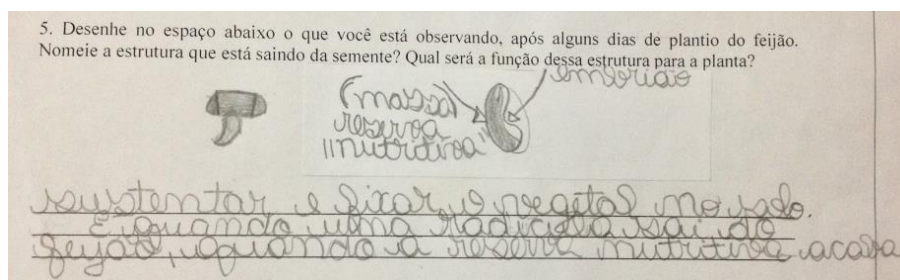 5. Desenhe no espaço abaixo o que você está observando, após alguns dias de plantio do feijão.
Nomeie a estrutura que está saindo da semente? Qual será a função dessa estrutura para a planta?
embrião
(massa)
reserva
"nutritiva"
sustentar e fixar o vegetal no solo.
É quando uma radícula sai do
feijão, quando a reserva nutritiva acaba